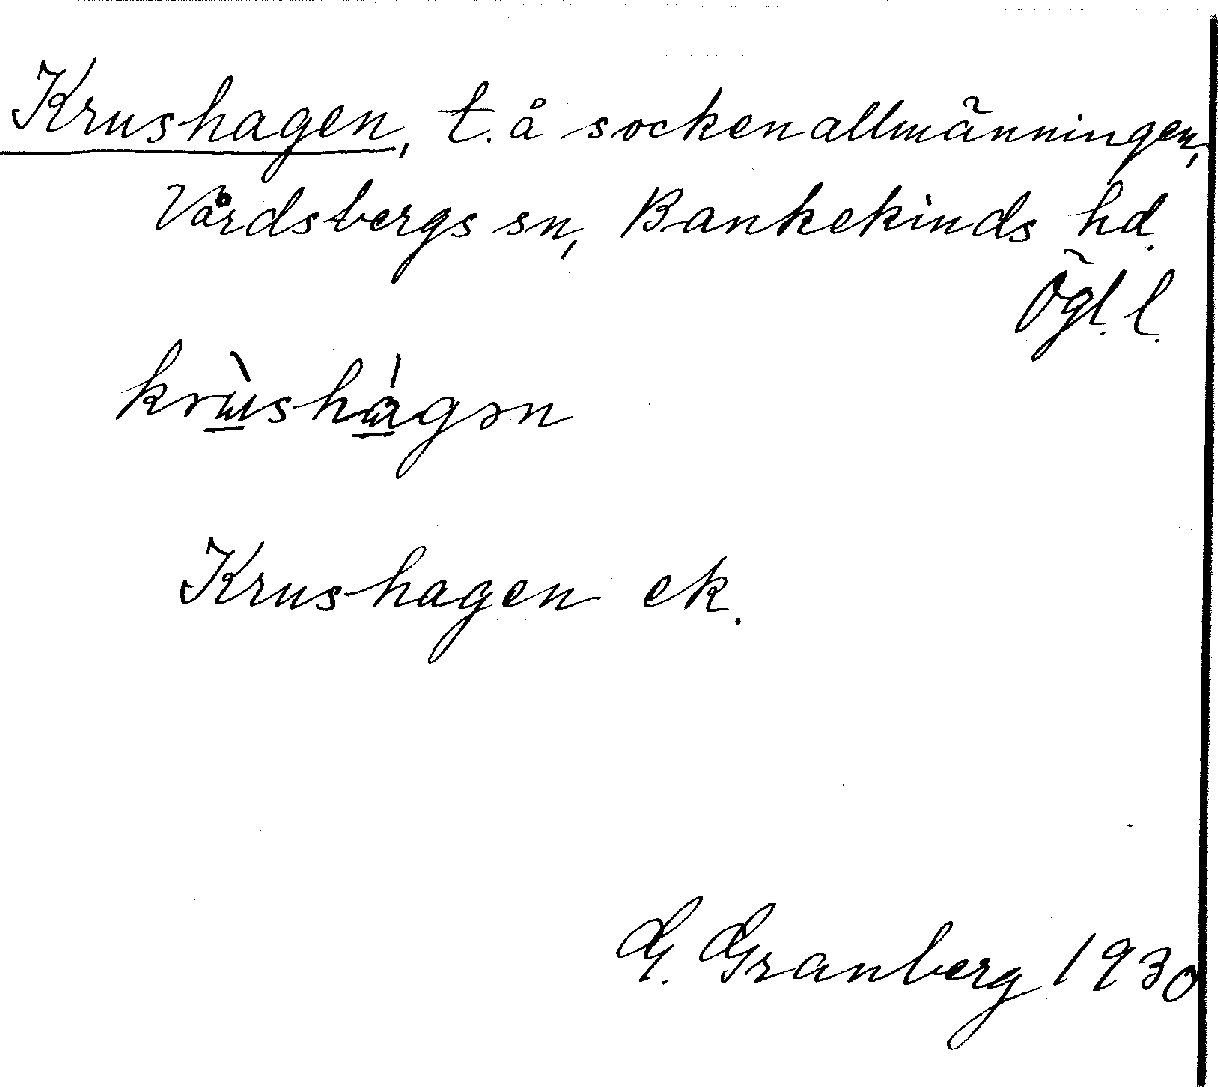 Krushagen, t. å sockenallmänningen,
Vårdsbergs sn, Bankekinds hd.
Ögl. l.
krùshágən
Krushagen ek.
G. Granberg 1930